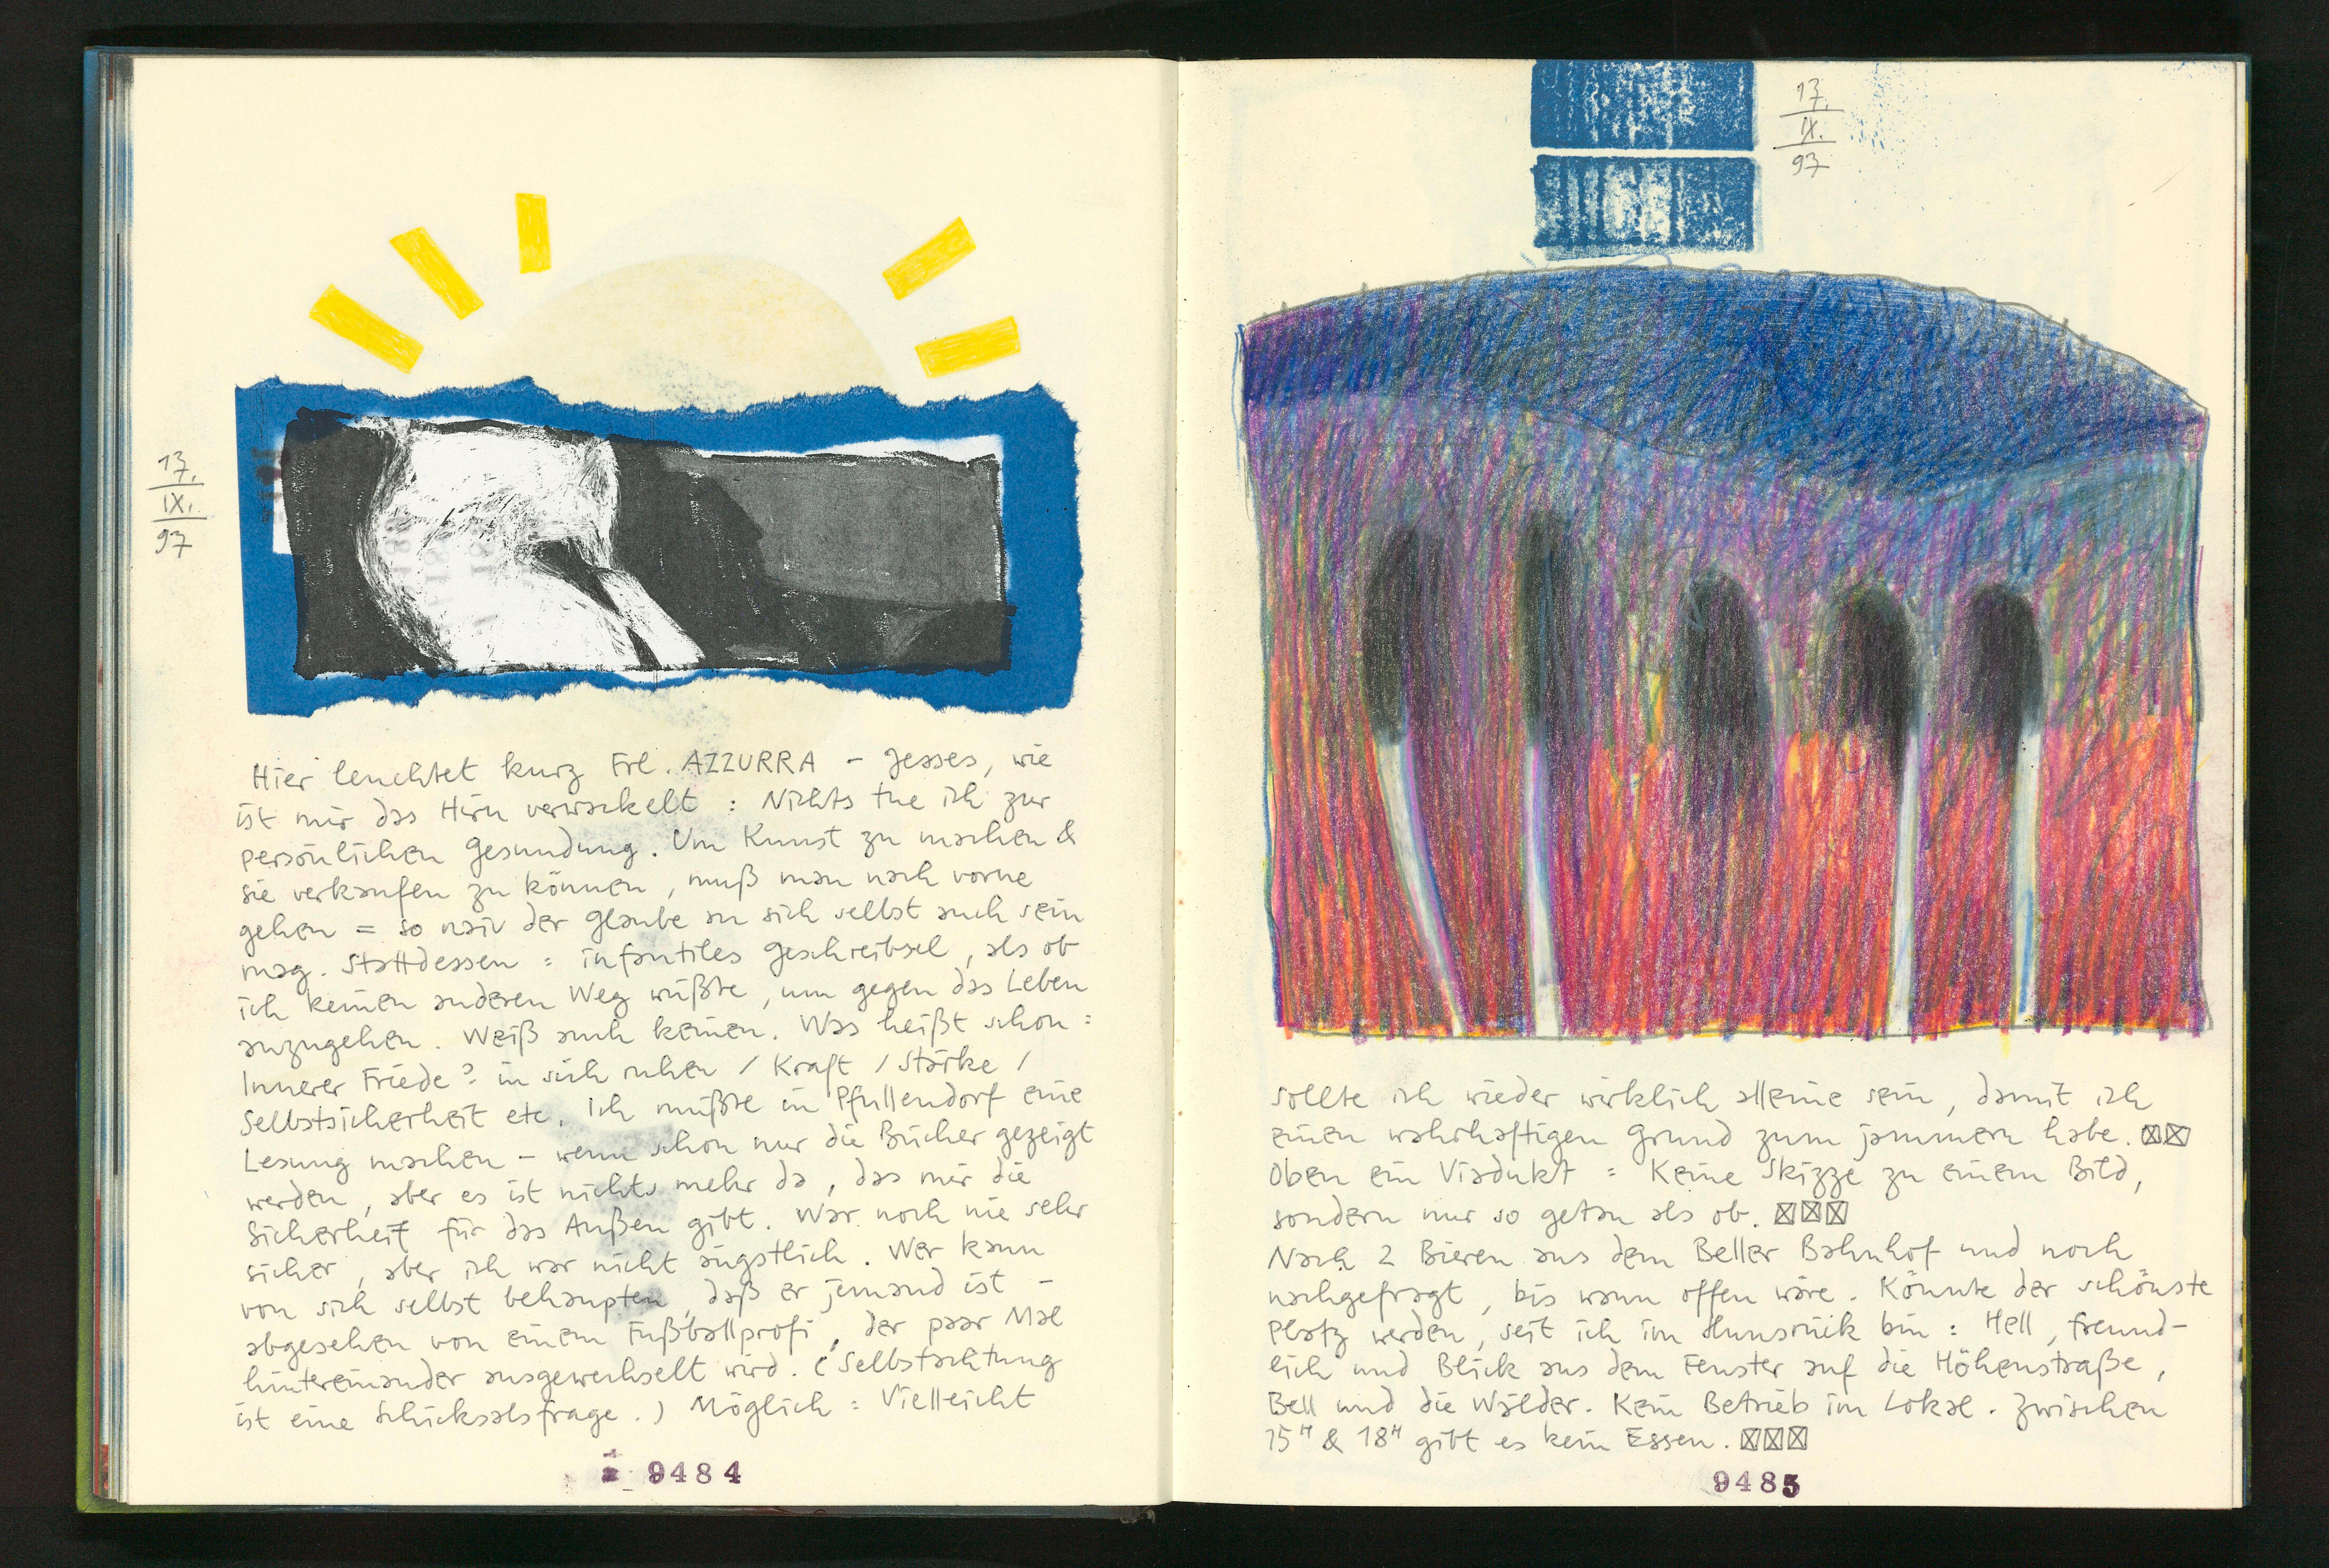 17.
IX.
97
Hier leuchtet kurz Frl. AZZURRA – Jesses, wie
ist mir das Hirn verwackelt : Nichts tue ich zur
persönlichen Gesundung. Um Kunst zu machen &
sie verkaufen zu können, muß man nach vorne
gehen = so naiv der Glaube an sich selbst auch sein
mag. Stattdessen : infantiles Geschreibsel, als ob
ich keinen anderen Weg wüßte, um gegen das Leben
anzugehen. Weiß auch keinen. Was heißt schon :
Innerer Friede? in sich ruhen / Kraft / Stärke /
Selbstsicherheit etc. Ich müßte in Pfullendorf eine
Lesung machen – wenn schon nur die Bücher gezeigt
werden, aber es ist nichts mehr da, das mir die
Sicherheit für das Außen gibt. War noch nie sehr
sicher, aber ich war nicht ängstlich. Wer kann
von sich selbst behaupten, daß er jemand ist –
abgesehen von einem Fußballprofi, der paar Mal
hintereinander ausgewechselt wird. (Selbstachtung
ist eine Schicksalsfrage.) Möglich : Vielleicht
9484
17.
IX.
97
sollte ich wieder wirklich alleine sein, damit ich
einen wahrhaftigen Grund zum jammern habe. ☒☒
Oben ein Viadukt : Keine Skizze zu einem Bild,
sondern nur so getan als ob. ☒☒☒
Nach 2 Bieren aus dem Beller Bahnhof und noch
nachgefragt, bis wann offen wäre. Könnte der schönste
Platz werden, seit ich im Hunsrück bin : Hell, freund-
lich und Blick aus dem Fenster auf die Höhenstraße,
Bell und die Wälder. Kein Betrieb im Lokal. Zwischen
15ʰ & 18ʰ gibt es kein Essen. ☒☒☒
9485